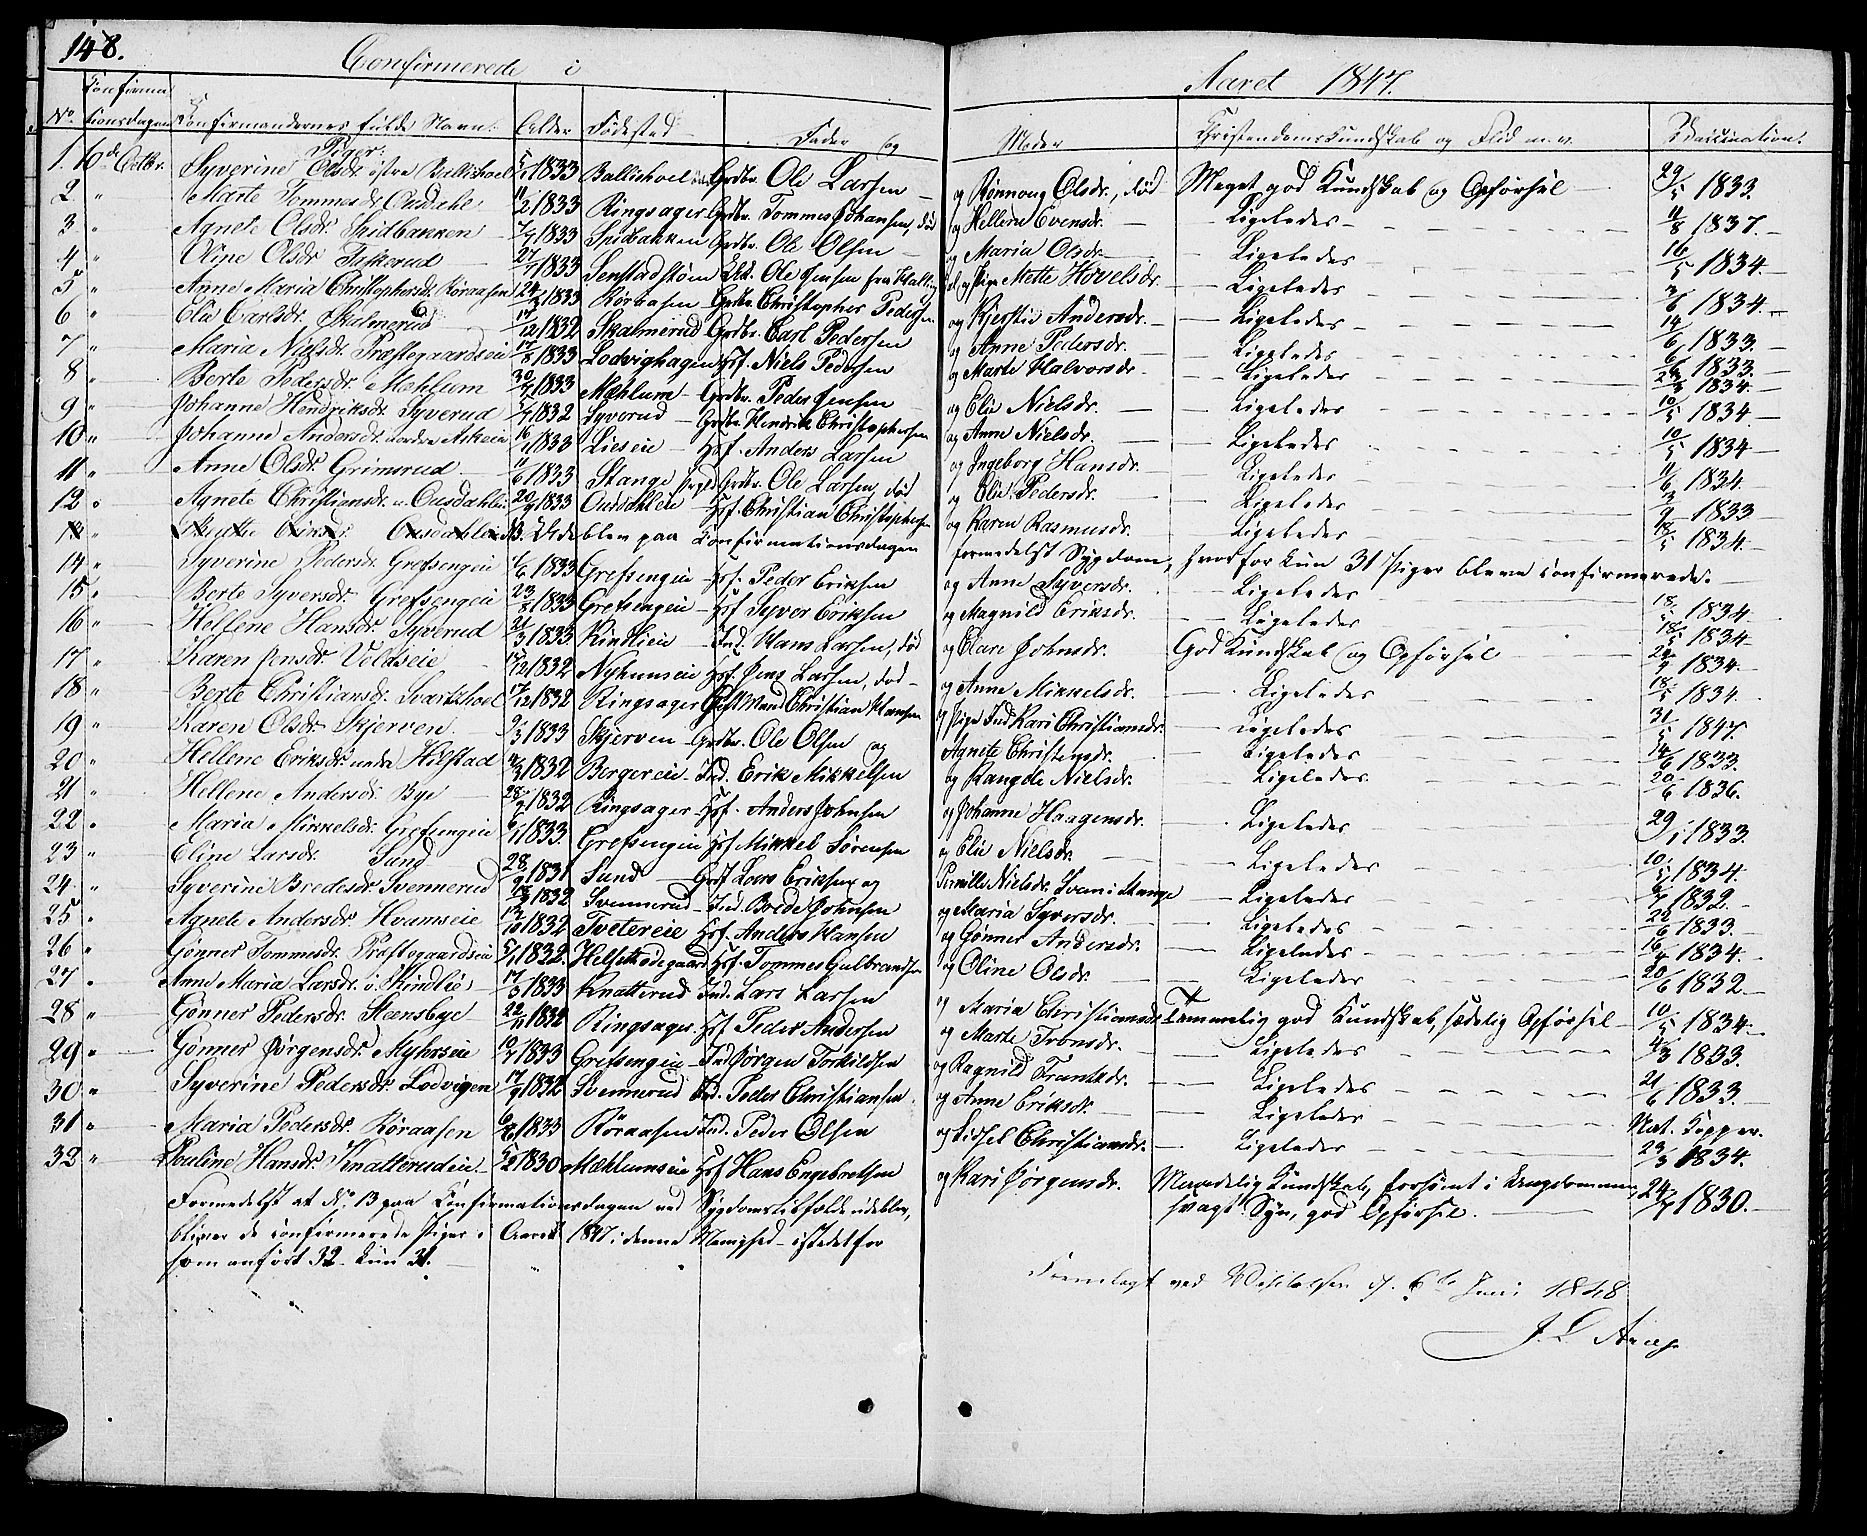 148. Confirmerede i Aaret 1847.
No. Confirmationsdagen Confirmandernes fulde Navn. Alder Fødested Fader og Moder Christendoms Kundskab og Flid m.v. Vaccination.
Piger:
1. 6te Octbr. Syverine Olsdr. østre Ballishoel 1833 Ballishoel Grdbr. Ole Larsen og Rønnoug Olsdr., død Meget god Kundskab og Opførsel 29/5 1833.
2. " Marte Tommesdr. 11/2 1833 Ringsager Grdbr. Tommes Johansen, død og Hellene Evensdr. Ligeledes 11/8 1837.
3 " Agnete Olsdr. Skidbakken 7/7 1833 Skidbakken Grdbr. Ole Olsen og Maria Olsdr. Ligeledes 16/5 1834.
4 " Oline Olsdr. 27/7 1833 Ole Jensen og Pige Mette Hovelsdr. Ligeledes 1834.
5 " Anne Maria Christophersdr. Køraasen 1833 Køraasen Grdbr. Christopher Pedersen og Kjerstie Andersdr. Ligeledes 14/6 1833
6 " Elie Carlsdr. Skalmerud 17/12 1832 Skalmerud Grdbr. Carl Pedersen og Anne Pedersdr. Ligeledes 1833.
7 " Maria Nielsdr. Præstegaardseie 17/8 1833 Lodvighagen Hsf. Niels Pedersen og Marte Halvorsdr. Ligeledes 1834.
8 " Berte Pedersdr. Mæhlum 30/7 1833 Mæhlum Grdbr. Peder Jensen og Elie Nielsdr. Ligeledes 10/5 1834
9 " Johanne Hendriksdr. Syverud 1832 Syverud Grdbr. Hendrik Christophersen og Anne Nielsdr. Ligeledes 10/5 1834
10 " Johanne Andersdr. nordre Askeie 16/1 1833 Lieseie Hsf. Anders Larsen og Ingeborg Hansdr. Ligeledes 11/6 1834
11 " Anne Olsdr. Grimsrud 11/6 1833 Stange Grdbr. Ole Larsen, død og Elie Pedersdr. Ligeledes 1833
12 " Agnete Christiansdr. Ousdahleie 20/9 1833 Ousdahleie Hsf. Christian Christophersen og Karen Rasmusdr. Ligeledes 18/5 1834.
Ousdahleie 13. Udeblev paa Confirmationsdagen formedelst Sygdom, hvorfor kun 31 Piger bleve confirmerede.
14 " Syverine Pedersdr. Grefsengeie 1/6 1833 Grefsengeie Hsf. Peder Eriksen og Anne Syversdr. Ligeledes 18/5 1834
15. " Berte Syversdr. Grefsengeie 23/8 1833 Grefsengeie Hsf. Syver Eriksen og Magnild Eriksdr. Ligeledes 18/5 1834
16 " Hellene Hansdr. Syverud 21/3 1833 Kindlieie Ind. Hans Larsen, død og Clare Johnsdr. God Kundskab og Opførsel 1834.
17 " Karen Jensdr. Voldseie 1832 Nyhuuseie Hsf. Jens Larsen, død og Anne Mikkelsdr. Ligeledes 18/5 1834
18 " Berte Christiansdr. Svartshoel 17/12 1832 Ringsager Gift Mand Christian Hansen og Pige Ind. Kari Christiansdr. Ligeledes 31/5 1847.
19 " Karen Olsdr. Skjerven 9/3 1833 Skjerven Grdbr. Ole Olsen og Agnete Christensdr. Ligeledes 14/6 1833.
20 " Hellene Eriksdr. nedre Hilstad 1832 Bergereie Ind. Erik Mikkelsen og Rangdie Nielsdr. Ligeledes 20/6 1836.
21 " Hellene Andersdr. Bye 1832 Ringsager Hsf. Anders Johnsen og Johanne Haagensdr. Ligeledes 29/5 1833.
22 " Maria Mikkelsdr. Grefsengeie 6/1 1833. Grefsengeie Hsf. Mikkel Sørensen og Elie Nielsdr. Ligeledes 10/5 1834.
23 " Eline Larsdr. Sund 28/9 1831 Sund Lars Eriksen og Pernille Nielsdr. Ligeledes 1832.
24. " Syverine Bredesdr. Svennerud 1832 Svennerud Ind. Brede Johnsen og Maria Syversdr. Ligeledes 1833.
25. " Agnete Andersdr. Hvamseie 13/10 1832 Tvetereie Hsf. Anders Hansen og Gønner Andersdr. Ligeledes 1834.
26 " Gønner Tommesdr. Præstegaardseie 1832. Helsetødegaard Hsf. Tommes Gulbrandsen og Oline Olsdr. Ligeledes 20/6 1832
27 " Anne Maria Larsdr. i. Kindlie 17/3 1833 Knatterud Ind. Lars Larsen og Maria Christiansdr. Temmelig god Kundskab, sædelig Opførsel 10/5 1834.
28 " Gønner Pedersdr. Steensbye 22/11 1832 Ringsager. Hsf. Peder Andersen og Marte Tronsdr. Ligeledes 1833.
29 " Gønner Jørgensdr. Myhrseie 10/7 1833 Grefsengeie Ind. Jørgen Torkildsen og Ragnild Frantsdr. Ligeledes 21/6 1833
30 " Syverine Pedersdr. Lodvigen 17/9 1832 Svennerud Ind. Peder Christiansen og Anne Eriksdr. Ligeledes Nat. Kopper.
31 " Maria Pedersdr. Køraasen 1833 Køraasen Ind. Peder Olsen og Sidsel Christiansdr. Ligeledes 23/3 1834.
32 " Pouline Hansdr. Knatterudeie 1830 Mæhlumseie Hsf Hans Engebretsen og Kari Jørgensdr. Maadelig Kundskab, forsømt i Ungdommen, svagt Syn, god Opførsel. 24/7 1830.
Formedelst at No. 13 paa Confirmationsdagen ved Sygdomstilfælde udeblev,
bliver de confirmerede Piger i Aaret 1847 i denne Menighed istedetfor
som anført 32 kun 31.
Fremlagt ved Visitatsen d. 6te Juni 1848
J. L. Arup